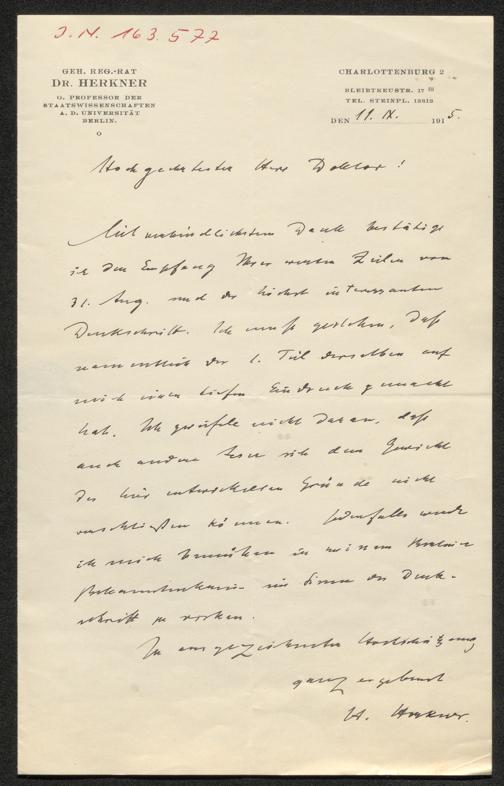 J. N. 163.577
GEH. REG.-RAT
DR. HERKNER
O. PROFESSOR DER
STAATSWISSENSCHAFTEN
A. D. UNIVERSITÄT
BERLIN.
CHARLOTTENBURG 2
BLEIBTREUSTR. 17 III
TEL. STEINPL. 13612
DEN 11. IX. 1915.
Hochgeehrtester Herr Doktor!
Mit verbindlichstem Dank bestätige
ich den Empfang Ihrer werten Zeilen vom
31. Aug. und der höchst interessanten
Denkschrift. Ich muß gestehen, daß
namentlich der 1. Teil derselben auf
mich einen tiefen Eindruck gemacht
hat. Ich zweifle nicht daran, daß
auch andere Leser sich dem Gewicht
der hier entwickelten Gründe nicht
verschließen können. Jedenfalls werde
ich mich bemühen in meinem
Bekanntenkreise im Sinne der Denk-
schrift zu wirken.
In ausgezeichneter Hochschätzung
ganz ergebenst
H. Herkner.